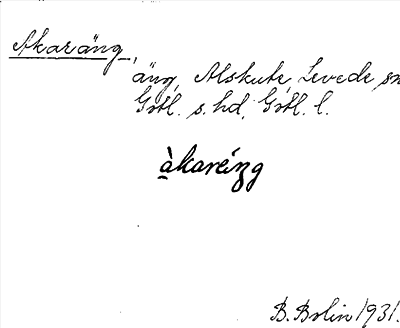 Akaräng,
äng, Alskute, Levede sn
Gotl. s. hd, Gotl. l.
àkaréng
B. Bolin 1931.